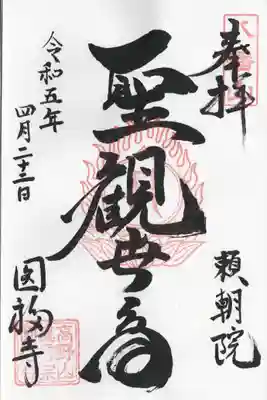 奉拝
頼朝院
聖観世音
令和五年
四月二十三日
圓福寺